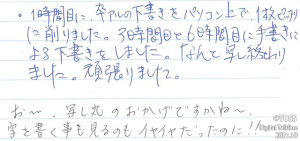 ・1時間目に、奇アルの下書きをパソコン上で1枚ピッタリ
に削りました。3日時間目と6時間目に手書きに
よる下書きをしました。なんと写し終わり
ました。頑張りました。
お〜、写し丸のおかげですかね〜
字を書く事も見るのもイヤイヤだったのに!!
©TOSS
Digital Talkline
2021.10